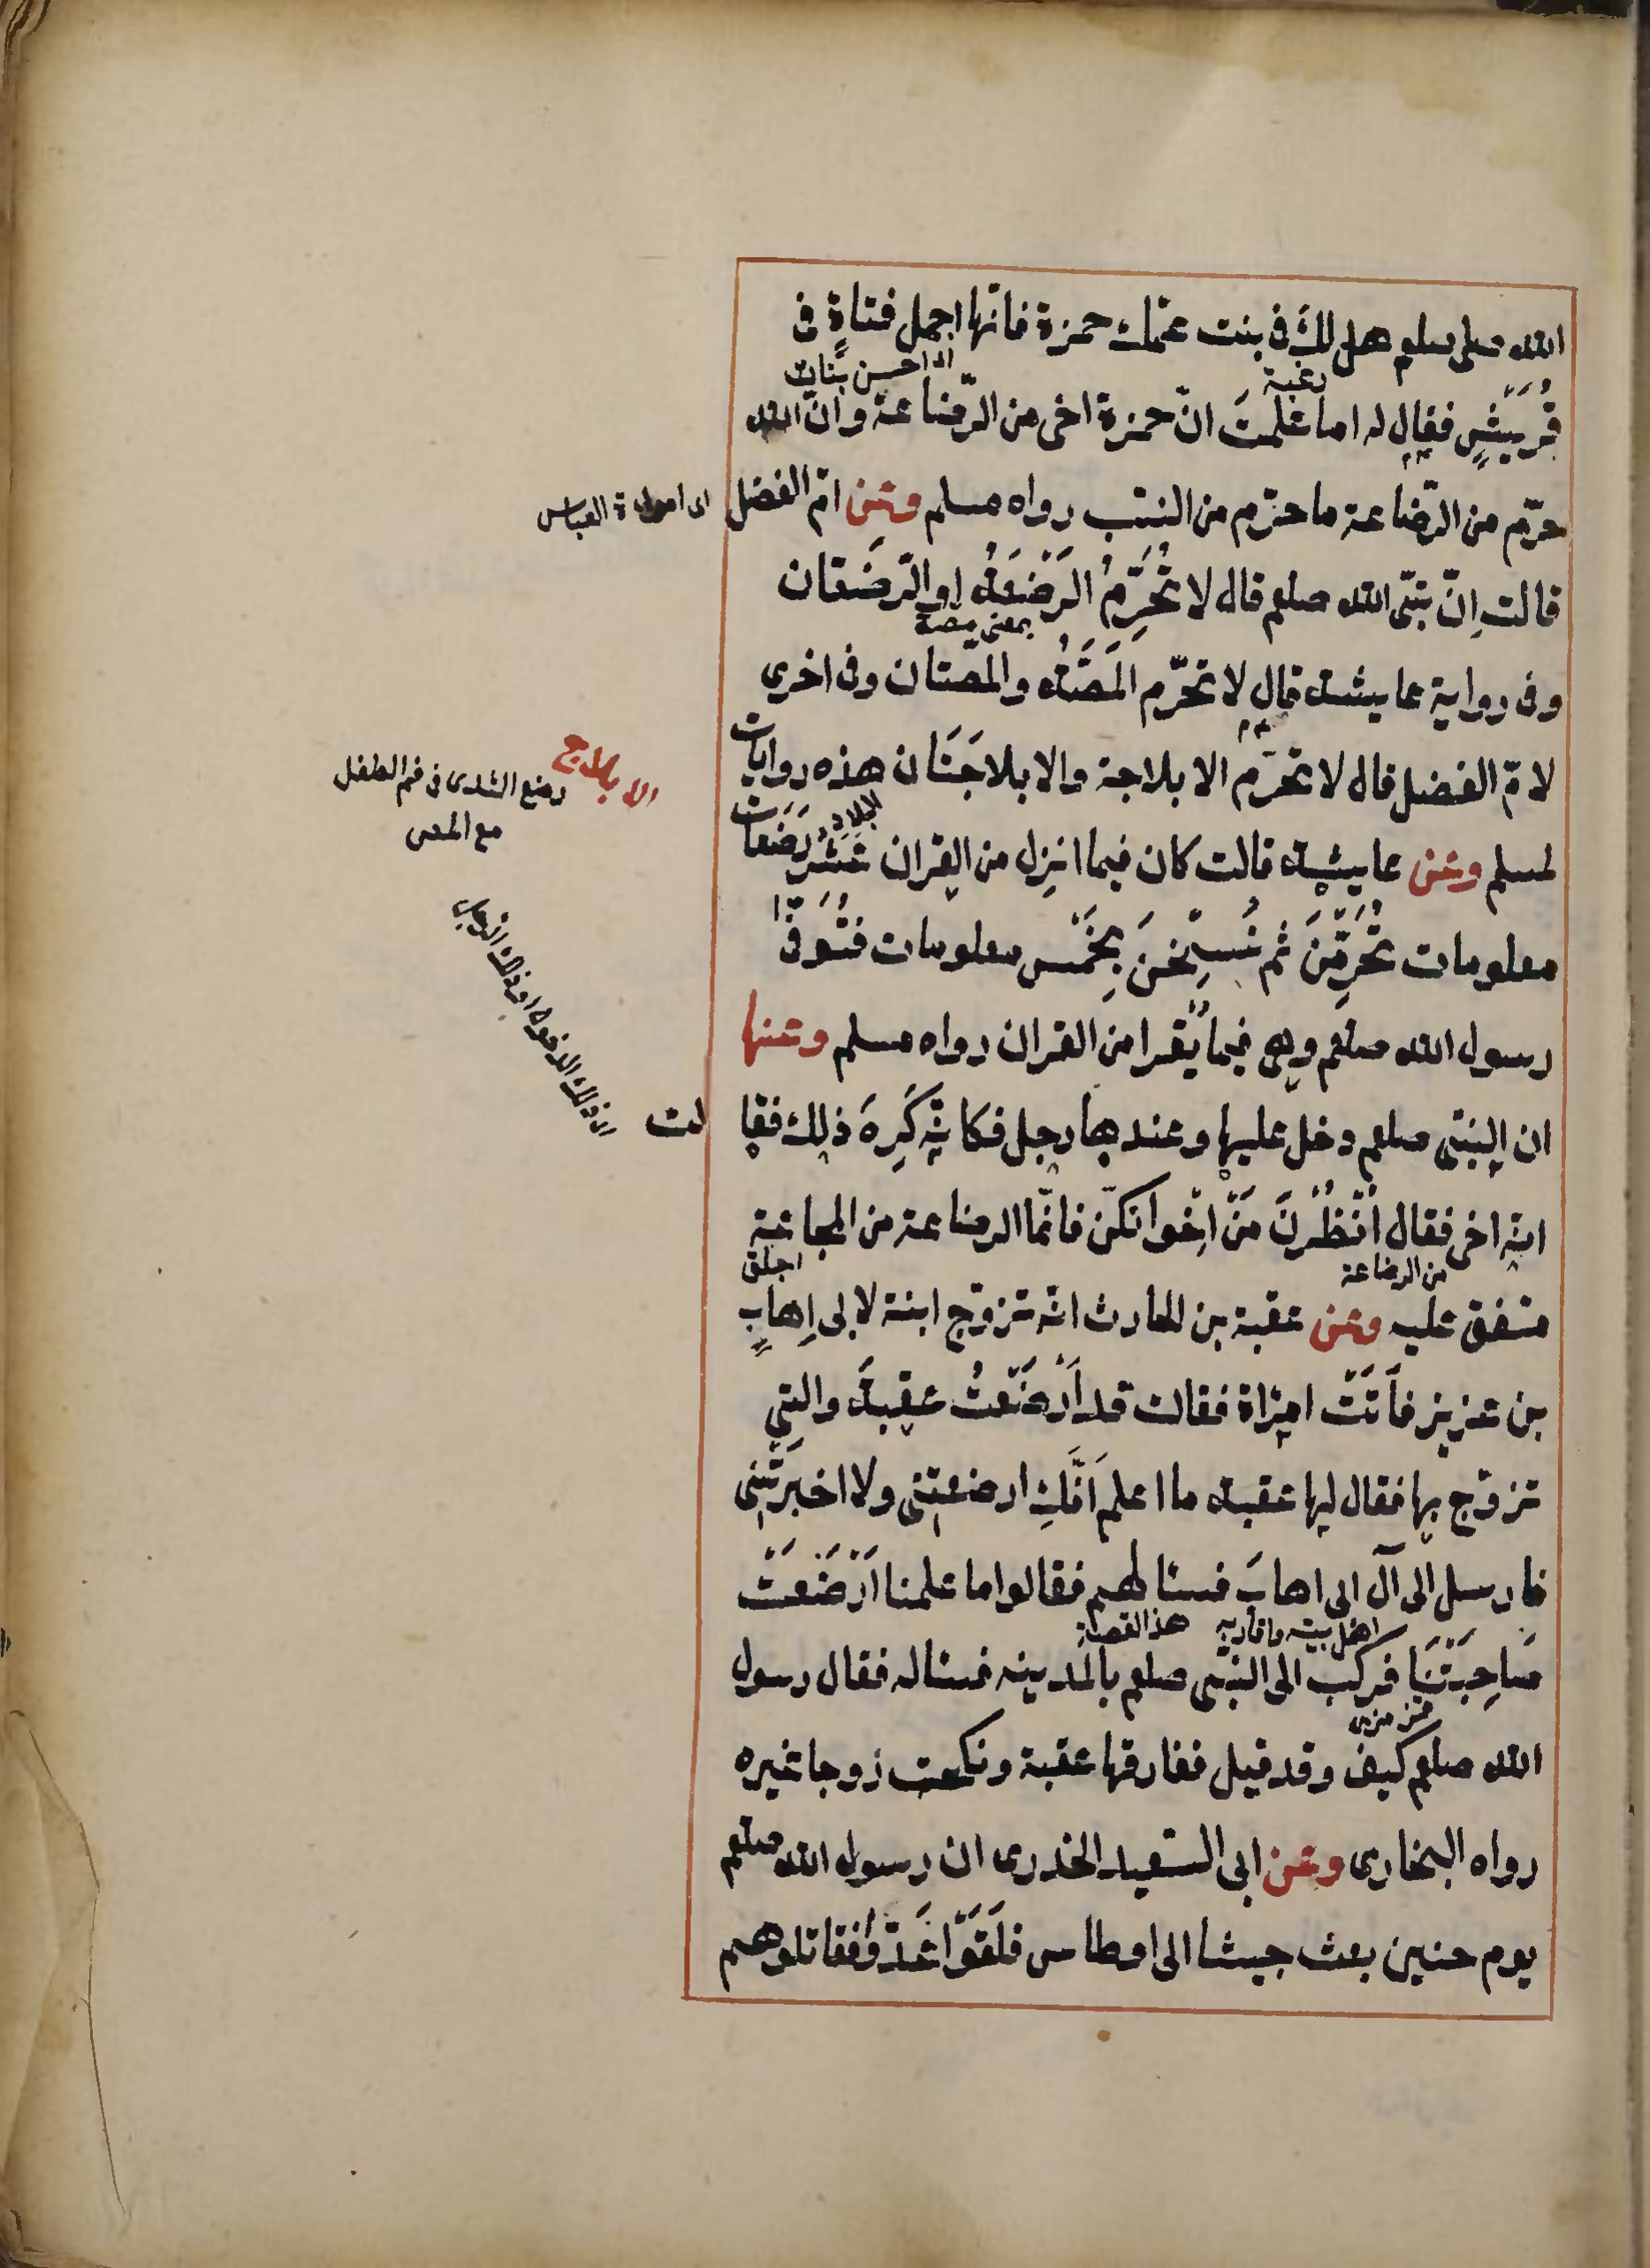 الله صلى سلم هل لك فى بنت عمّك حمزة فانّها اجمل فتاةٍ فى
رغبة
احسن بنات
قُرَيشٍ فقال له اما علمتَ انّ حمزة اخى من الرّضاعة وانّ الله
حرّم من الرّضاعة ما حرّم من النسب رواه مسلم وعن امّ الفضل
قالت اِنّ نبىّ الله صلعم قال لا تُحَرِّمُ الرَضْعَةُ او الرّضعتان
بمعنى مصة
وفى رواية عايشة قال لا تحرّم المَصَّةُ والمصّتان وفى اخرى
لامّ الفضل قال لا تحرّم الاملاجة والاملاجَتَان هذه روايات
لمسلم وعن عايشة قالت كان فيما انزل من القران عَشْرُ رَضَعَات
معلومات يُحَرِّمْنَ ثم نُسِخْنَ بِخَمْسٍ معلومات فتُوَفّى
رسول الله صلعم وهى فيما يُقرا من القران رواه مسلم وعنها
ان النبىّ صلعم دخل عليها وعندها رجل فكانّه كَرِهَ ذلك فقا لت
انّه اخى فقال اُنْظُرْنَ مَنْ اِخْوانكنّ فانّما الرضاعة من المجاعة
من الرضاعة
متفق عليه وعن عقبة بن الحارث انّه تزوّج ابنة لابى اِهابِ
بن عزيز فاَتَتْ امراة فقالت قد اَرْضَعْتُ عقبةَ والتى
تزوّج بها فقال لها عقبة ما اعلم اَنَّكِ ارضعتنى ولا اخبرتَنى
فارسل الى آل ابى اهابَ فسئالهم فقالوا ما علمنا اَرْضَعَتْ
اهل بيته واقاربه
هذا القصة
صَاحِبَتَنَا فركب الى النبّى صلعم بالمدينه فسئاله فقال رسول
الله صلعم كيف وقد قيل ففارقها عقبة ونكحت زوجا غيره
رواه البخارى وعن ابى السّعيد الخدرى ان رسول الله صلعم
يوم حنين بعث جيشا الى اوطاس فلَقَوْا عَدُوًّا فقاتلوهم
اى امراة العباس
الاملاج
وضع الثدى فى فم الطفل
مع المص